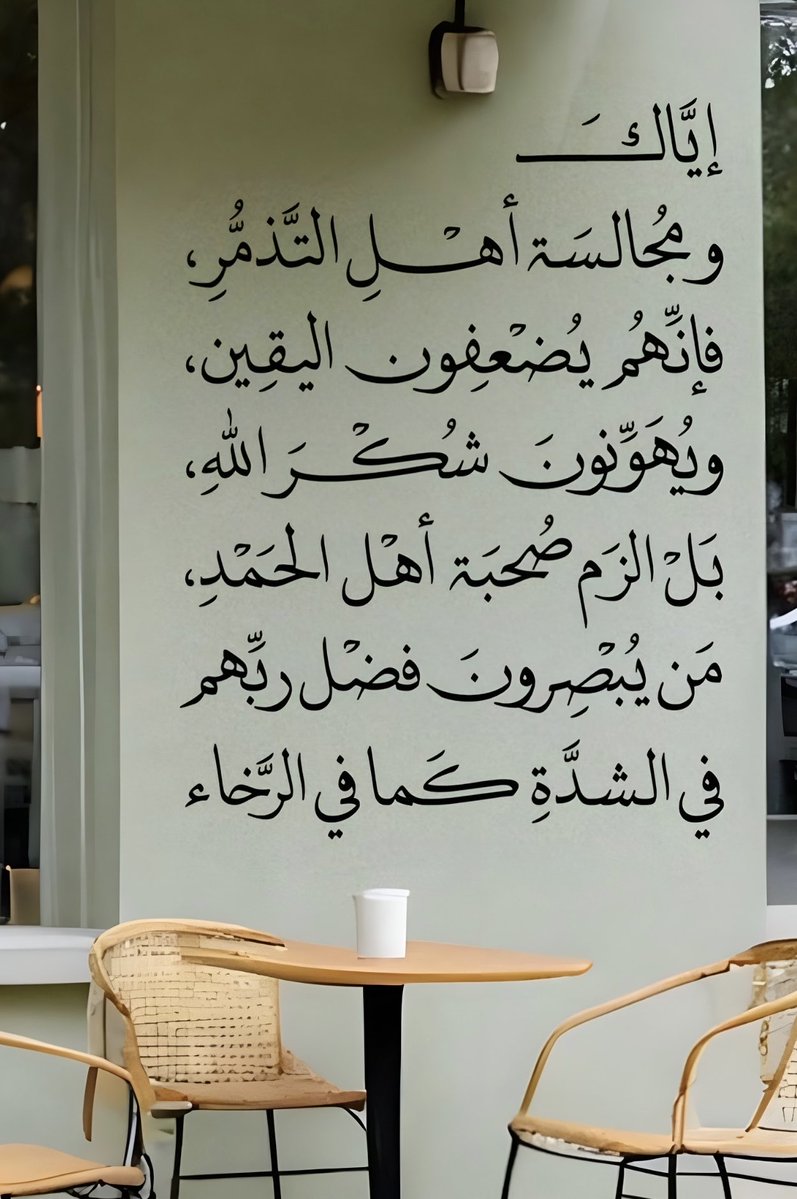 إيَّاكَ
ومُجالسَة أهْلِ التَّذمُّرِ،
فإنَّهُم يُضْعِفون اليقِين،
ويُهَوِّنونَ شُكْرَ اللهِ،
بَلْ الزَم صُحبَة أهْل الحَمْدِ،
مَن يُبْصِرونَ فضْل ربِّهم
في الشدَّةِ كَما في الرَّخاء